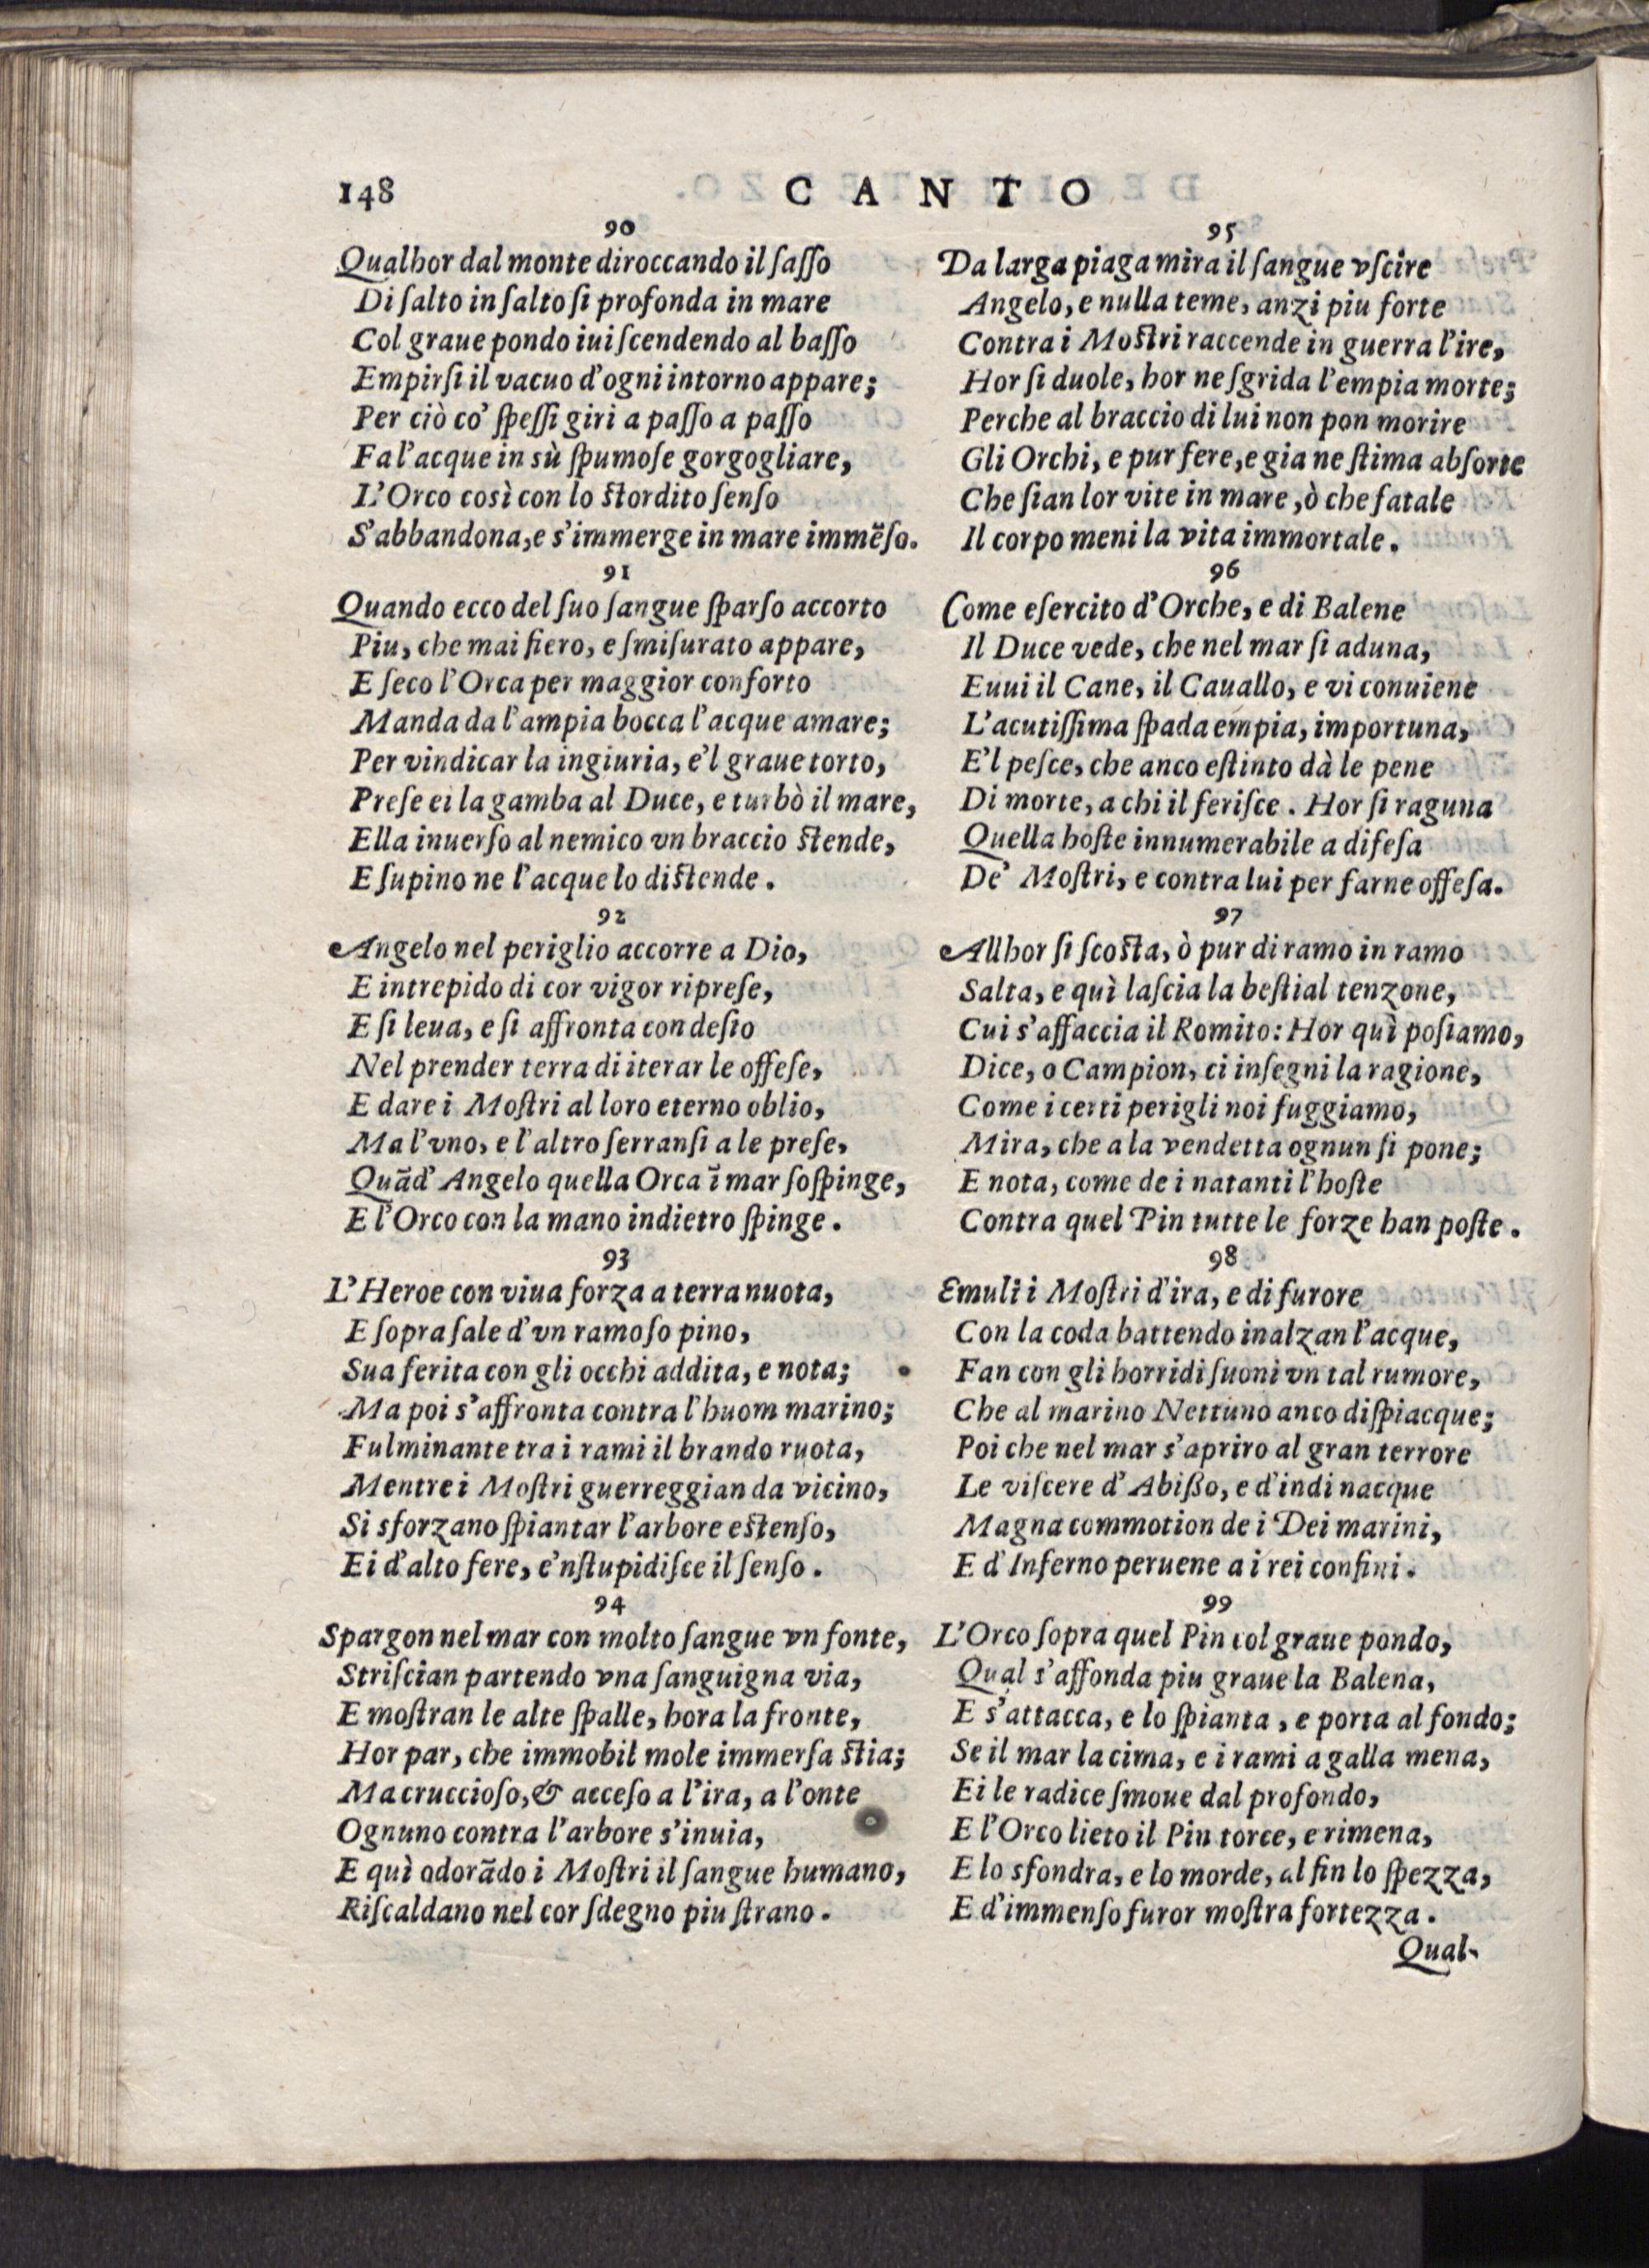 148
CANTO
90
Qualhor dal monte diroccando il ſaſſo
Di ſalto in ſalto ſi profonda in mare
Col graue pondo iui ſcendendo al baſſo
Empirſi il vacuo d'ogni intorno appare;
Per ciò co' ſpeſſi giri a paſſo a paſſo
Fa l'acque in sù ſpumoſe gorgogliare,
L'Orco così con lo ſtordito ſenſo
S'abbandona, e s'immerge in mare immẽſo.
91
Quando ecco del ſuo ſangue ſparſo accorto
Piu, che mai fiero, e ſmiſurato appare,
E ſeco l'Orca per maggior conforto
Manda da l'ampia bocca l'acque amare;
Per vindicar la ingiuria, e'l graue torto,
Preſe ei la gamba al Duce, e turbò il mare,
Ella inuerſo al nemico vn braccio ſtende,
E ſupino ne l'acque lo diſtende.
92
Angelo nel periglio accorre a Dio,
E intrepido di cor vigor ripreſe,
E ſi leua, e ſi affronta con deſio
Nel prender terra di iterar le offeſe,
E dare i Moſtri al loro eterno oblio,
Ma l'vno, e l'altro ſerranſi a le preſe,
Quãd' Angelo quella Orca ĩ mar ſoſpinge,
E l'Orco con la mano indietro ſpinge.
93
L'Heroe con viua forza a terra nuota,
E ſopra ſale d'vn ramoſo pino,
Sua ferita con gli occhi addita, e nota;
Ma poi s'affronta contra l'huom marino;
Fulminante tra i rami il brando ruota,
Mentre i Moſtri guerreggian da vicino,
Si sforzano ſpiantar l'arbore eſtenſo,
Ei d'alto fere, e'nſtupidiſce il ſenſo.
94
Spargon nel mar con molto ſangue vn fonte,
Striſcian partendo vna ſanguigna via,
E moſtran le alte ſpalle, hora la fronte,
Hor par, che immobil mole immerſa ſtia;
Ma cruccioſo, & acceſo a l'ira, a l'onte
Ognuno contra l'arbore s'inuia,
E quì odorãdo i Moſtri il ſangue humano,
Riſcaldano nel cor ſdegno piu ſtrano.
95
Da larga piaga mira il ſangue vſcire
Angelo, e nulla teme, anzi piu forte
Contra i Moſtri raccende in guerra l'ire,
Hor ſi duole, hor ne ſgrida l'empia morte;
Perche al braccio di lui non pon morire
Gli Orchi, e pur fere, e gia ne ſtima abſorte
Che ſian lor vite in mare, ò che fatale
Il corpo meni la vita immortale.
96
Come eſercito d'Orche, e di Balene
Il Duce vede, che nel mar ſi aduna,
Euui il Cane, il Cauallo, e vi conuiene
L'acutiſſima ſpada empia, importuna,
E'l peſce, che anco eſtinto dà le pene
Di morte, a chi il feriſce. Hor ſi raguna
Quella hoſte innumerabile a difeſa
De' Moſtri, e contra lui per farne offeſa.
97
Allhor ſi ſcoſta, ò pur di ramo in ramo
Salta, e quì laſcia la beſtial tenzone,
Cui s'affaccia il Romito: Hor quì poſiamo,
Dice, o Campion, ci inſegni la ragione,
Come i certi perigli noi fuggiamo,
Mira, che a la vendetta ognun ſi pone;
E nota, come de i natanti l'hoſte
Contra quel Pin tutte le forze han poſte.
98
Emuli i Moſtri d'ira, e di furore
Con la coda battendo inalzan l'acque,
Fan con gli horridi ſuoni vn tal rumore,
Che al marino Nettuno anco diſpiacque;
Poi che nel mar s'apriro al gran terrore
Le viſcere d' Abißo, e d'indi nacque
Magna commotion de i Dei marini,
E d'Inferno peruene a i rei confini.
99
L'Orco ſopra quel Pin col graue pondo,
Qual s'affonda piu graue la Balena,
E s'attacca, e lo ſpianta, e porta al fondo;
Se il mar la cima, e i rami a galla mena,
Ei le radice ſmoue dal profondo,
E l'Orco lieto il Pin torce, e rimena,
E lo sfondra, e lo morde, al fin lo ſpezza,
E d'immenſo furor moſtra fortezza.
Qual-